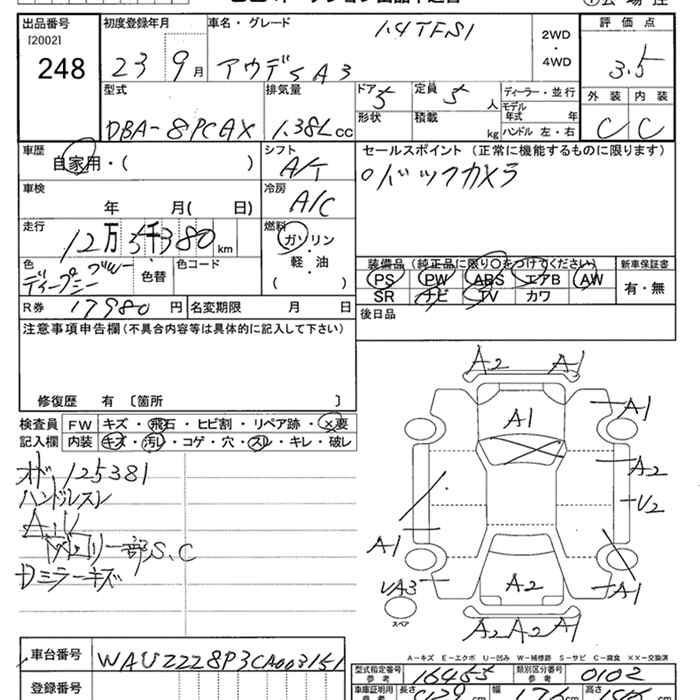 出品番号 初度登録年月 車名・グレード 1.4TFSI 2WD ・ 4WD 評価点
[2002] 248 23 9月 アウディ A3 3.5
外装 内装
C C
型式 排気量 ドア 5 定員 5人 ディーラー・並行
DBA-8PCAX 1.38L cc 形状 積載 kg モデル年式 年
ハンドル 左・右
車歴 シフト セールスポイント (正常に機能するものに限ります)
自家用・( ) A/T ○バックカメラ
車検 冷房
年 月( 日) A/C
走行 燃料
12万5千380km ガソリン
軽・油
( )
色 色替 色コード
ディープシーブルー
装備品 (純正品に限り○をつけてください) 新車保証書
PS PW ABS エアB AW 有・無
SR ナビ TV カワ
R券 17980円 名変期限 月 日 後日品
注意事項申告欄(不具合内容等は具体的に記入して下さい)
修復歴 有 〔箇所 〕
検査員 FW キズ・飛石・ヒビ割・リペア跡・×要
記入欄 内装 キズ・汚レ・コゲ・穴・スレ・キレ・破レ
オド125381
ハンドルスレ
グリル一部S、C
ミラーキズ
A2 A1
A1 A1
A2
U2
A1
UA3 A2 A1
スペア
A2 A2 A1
A-キズ E-エクボ U-凹み W-補修跡 S-サビ C-腐食 XX-交換済
車台番号 WAUZZZ8P3CA003151
型式指定番号 参考 16455 類別区分番号 参考 0102
登録番号
車庫証明用 参考 長さ 幅 高さ